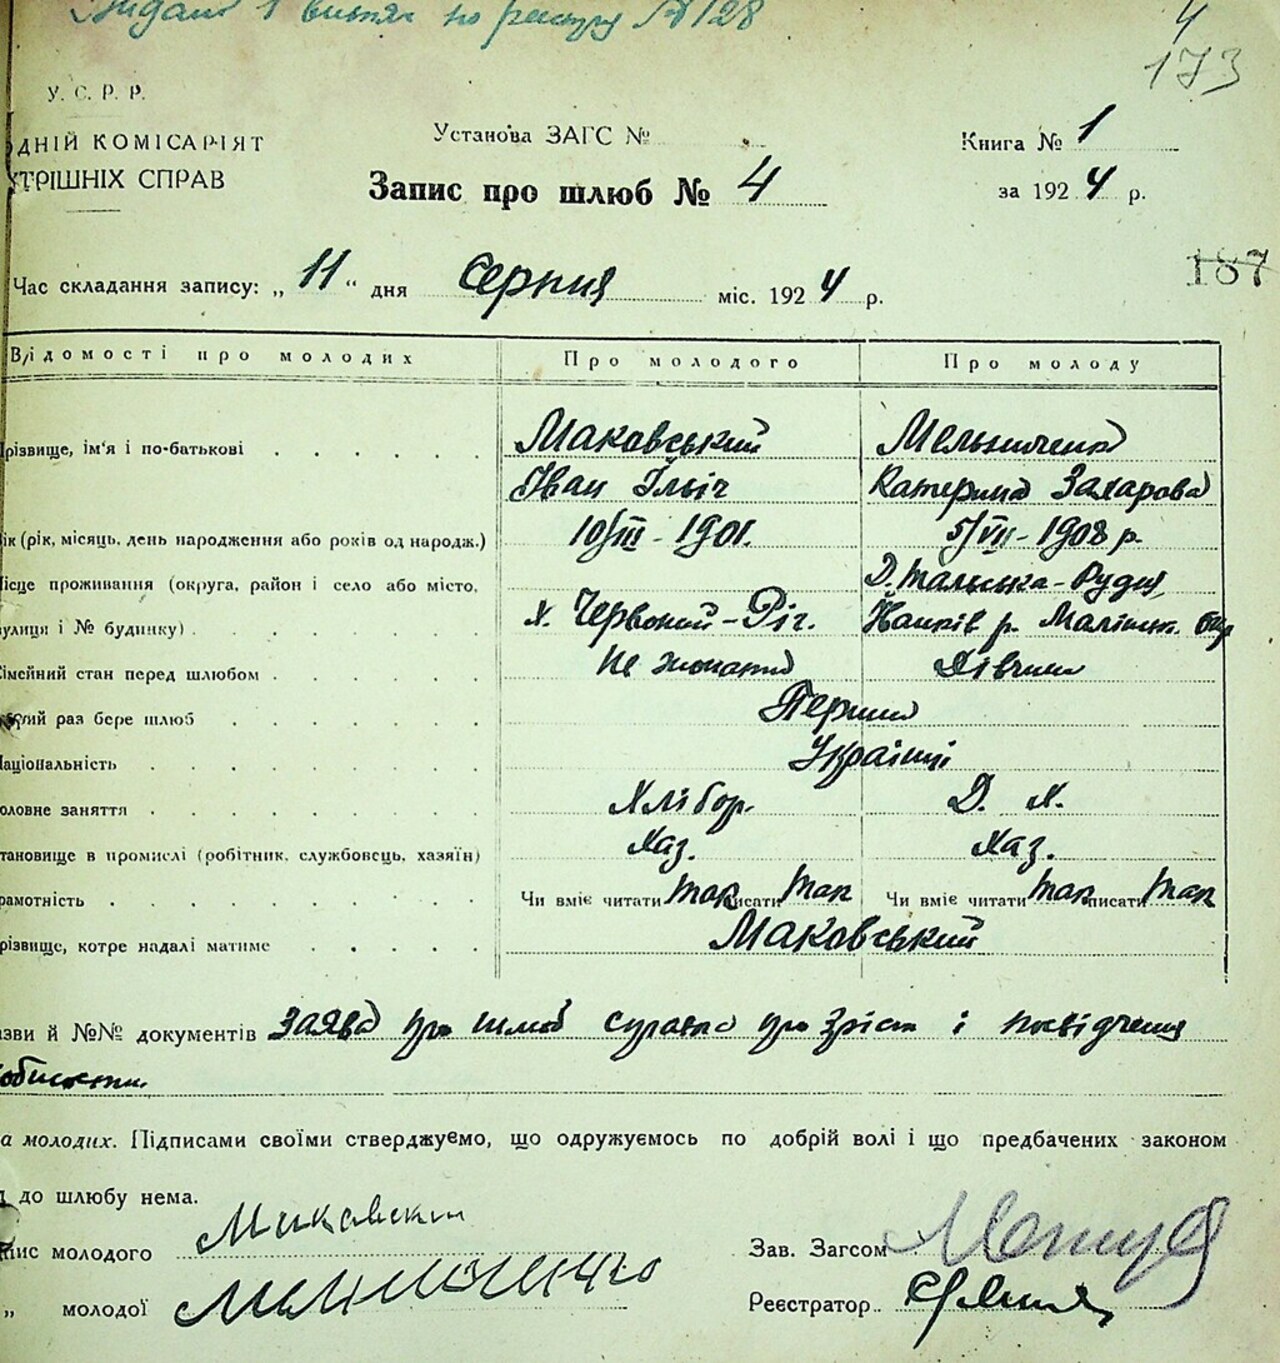 Видані 1 витяг по реєстру № 128
4
173
У. С. Р. Р.
ДНІЙ КОМІСАРІЯТ
ТРІШНІХ СПРАВ
Установа ЗАГС №
Книга № 1
Запис про шлюб № 4
за 1924 р.
187
Час складання запису: „11“ дня Серпня міс. 1924 р.
Відомості про молодих Про молодого Про молоду
різвище, ім'я і по-батькові Маковський Мельниченко
Іван Ільіч Катерина Захарова
ік (рік, місяць, день народження або років од народж.) 10/III - 1901. 5/VII - 1908 р.
ісце проживання (округа, район і село або місто, Д. Тальська-Рудня,
улиця і № будинку) х. Червоний-Ріг. р. Малінськ.
імейний стан перед шлюбом Не жонатий Дівчина
раз бере шлюб Перший
аціональність Українці
оловне заняття Хлібор. Д. Х.
тановище в промислі (робітник, службовець, хазяїн) Хаз. Хаз.
рамотність Чи вміє читати так писати так Чи вміє читати так писати так
різвище, котре надалі матиме Маковський
азви й №№ документів Заява про шлюб справка про зріст і посвідчення
обистости
а молодих. Підписами своїми стверджуємо, що одружуємось по добрій волі і що предбачених законом
до шлюбу нема.
пис молодого Маковский
Зав. Загсом
„ молодої Мельниченко
Реєстратор